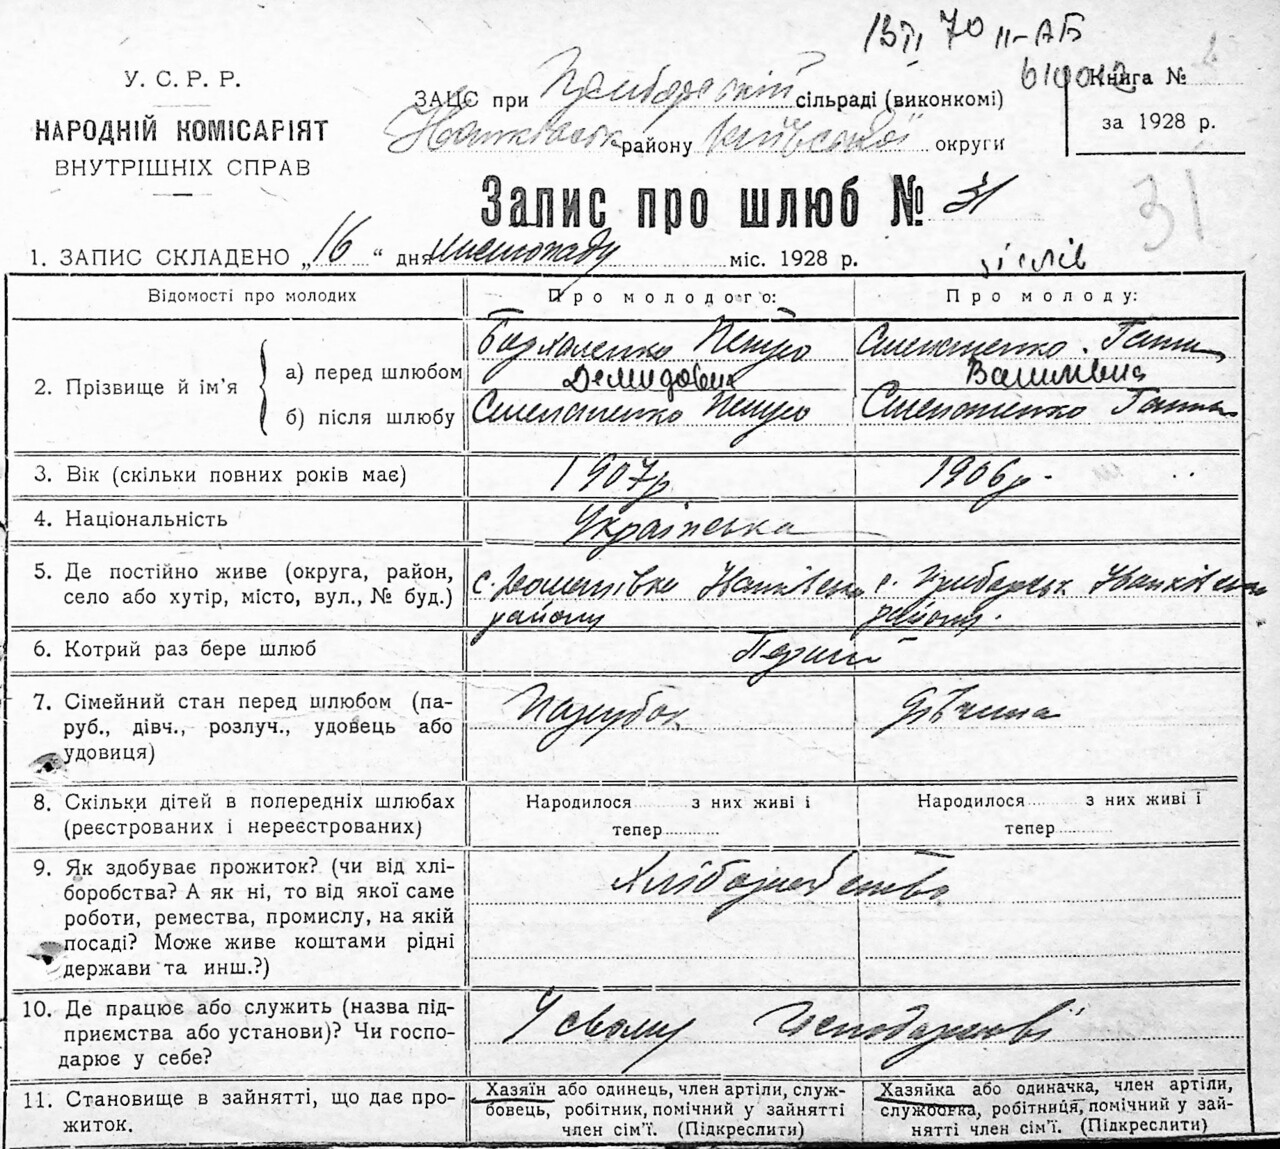 13 II 70 II-АБ
610012
У. С. Р. Р.
НАРОДНІЙ КОМІСАРІЯТ
ВНУТРІШНІХ СПРАВ
ЗАЦС при сільраді (виконкомі)
району Київської округи
Книга №
за 1928 р.
Запис про шлюб № 31
31
1. ЗАПИС СКЛАДЕНО „16“ дня листопаду міс. 1928 р.
Відомості про молодих
Про молодого:
Про молоду:
2. Прізвище й ім'я
а) перед шлюбом
Петро
Демидович
Степаненко Ганна
Василівна
б) після шлюбу
Степаненко Петро
Степаненко Ганна
3. Вік (скільки повних років має)
1907 р
1906 р.
4. Національність
Українська
5. Де постійно живе (округа, район,
село або хутір, місто, вул., № буд.)
с.
району
с.
району.
6. Котрий раз бере шлюб
Перший
7. Сімейний стан перед шлюбом (па-
руб., дівч., розлуч., удовець або
удовиця)
Парубок
Дівчина
8. Скільки дітей в попередніх шлюбах
(реєстрованих і нереєстрованих)
Народилося з них живі і
тепер
Народилося з них живі і
тепер
9. Як здобуває прожиток? (чи від хлі-
боробства? А як ні, то від якої саме
роботи, ремества, промислу, на якій
посаді? Може живе коштами рідні
держави та инш.?)
Хліборобство
10. Де працює або служить (назва під-
приємства або установи)? Чи госпо-
дарює у себе?
У свому господарстві
11. Становище в зайнятті, що дає про-
житок.
Хазяїн або одинець, член артіли, служ-
бовець, робітник, помічний у зайнятті
член сім'ї. (Підкреслити)
Хазяйка або одиначка, член артіли,
службовка, робітниця, помічний у зай-
нятті член сім'ї. (Підкреслити)